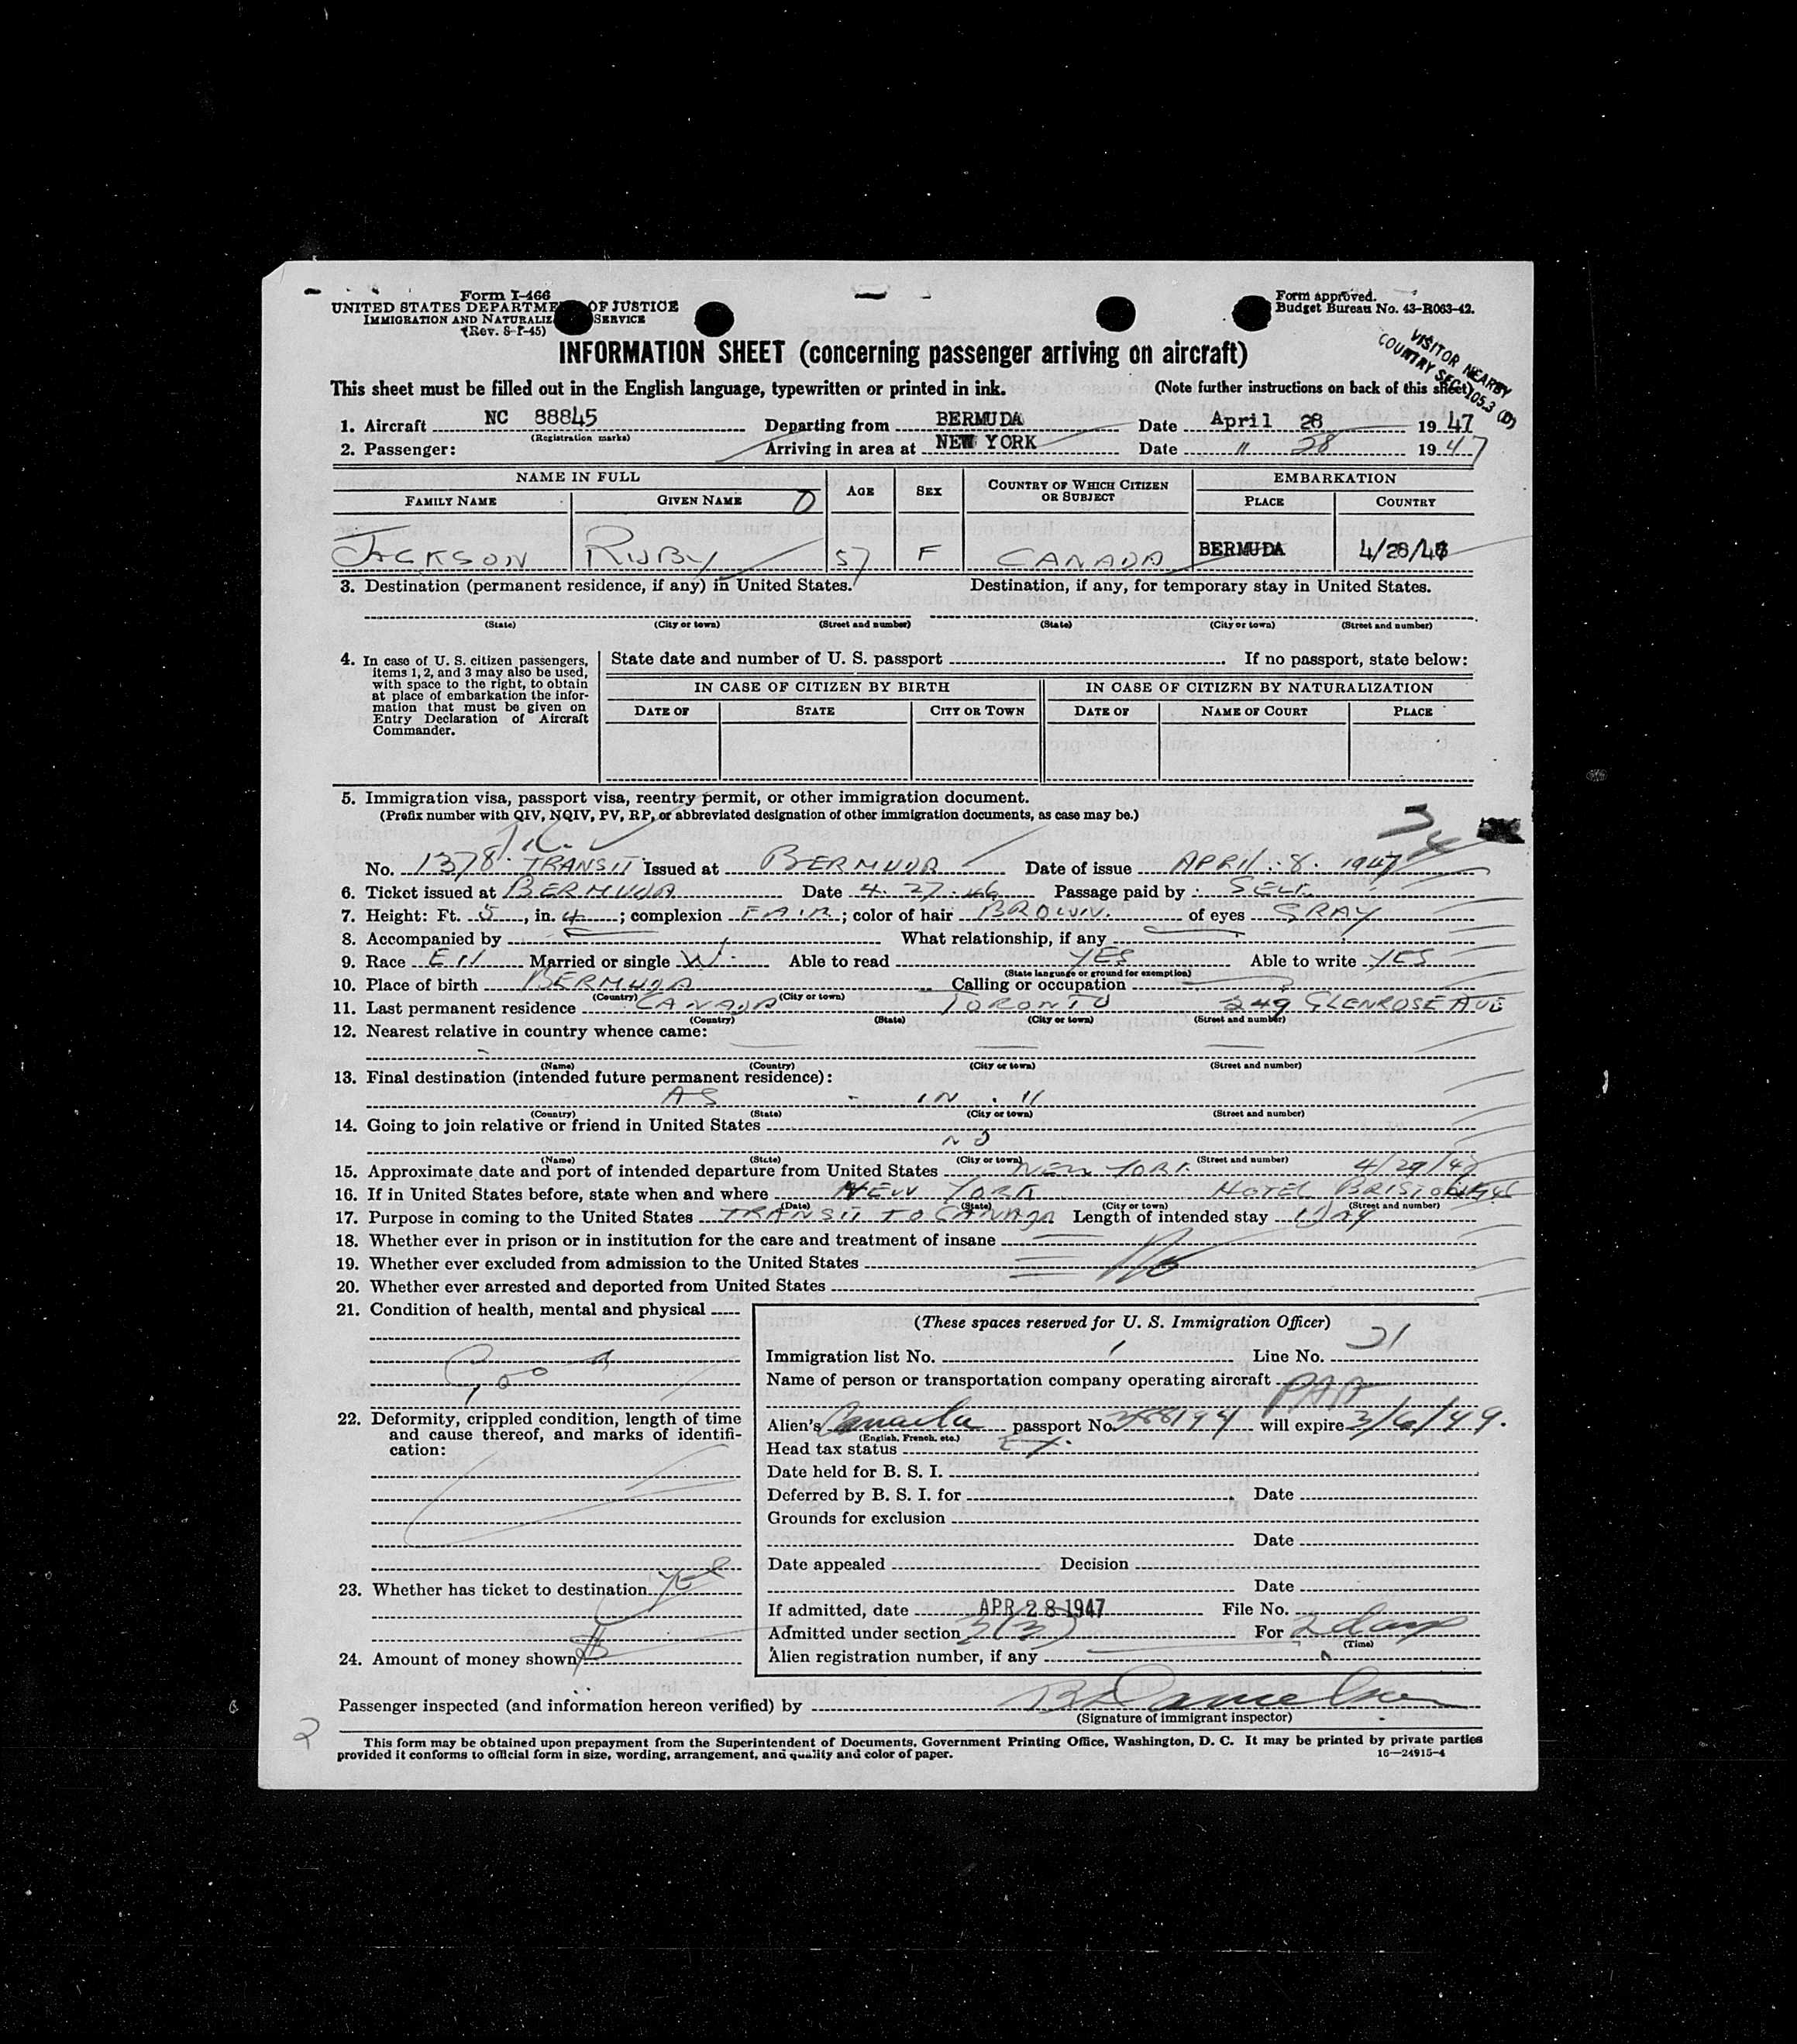 Form I-466
UNITED STATES DEPARTME OF JUSTICE
IMMIGRATION AND NATURALIZ SERVICE
(Rev. 8-1-45)
Form approved.
Budget Bureau No. 43-R063-42.
INFORMATION SHEET (concerning passenger arriving on aircraft)
VISITOR NEARBY
COUNTRY SEC. 105.3 (D)
This sheet must be filled out in the English language, typewritten or printed in ink. (Note further instructions on back of this sheet)
1. Aircraft NC 88845 Departing from BERMUDA Date April 28 1947
(Registration marks)
2. Passenger: Arriving in area at NEW YORK Date " 28 1947
NAME IN FULL AGE SEX COUNTRY OF WHICH CITIZEN OR SUBJECT EMBARKATION
FAMILY NAME GIVEN NAME PLACE COUNTRY
JACKSON RUBY 57 F CANADA BERMUDA 4/28/47
3. Destination (permanent residence, if any) in United States. Destination, if any, for temporary stay in United States.
(State) (City or town) (Street and number) (State) (City or town) (Street and number)
4. In case of U. S. citizen passengers, items 1, 2, and 3 may also be used, with space to the right, to obtain at place of embarkation the information that must be given on Entry Declaration of Aircraft Commander.
State date and number of U. S. passport If no passport, state below:
IN CASE OF CITIZEN BY BIRTH IN CASE OF CITIZEN BY NATURALIZATION
DATE OF STATE CITY OR TOWN DATE OF NAME OF COURT PLACE
5. Immigration visa, passport visa, reentry permit, or other immigration document.
(Prefix number with QIV, NQIV, PV, RP, or abbreviated designation of other immigration documents, as case may be.)
No. 1378 TRANSIT Issued at BERMUDA Date of issue APRIL 8. 1947
6. Ticket issued at BERMUDA Date 4. 27. 46 Passage paid by SELF
7. Height: Ft. 5, in. 4; complexion FAIR; color of hair BROWN. of eyes GRAY
8. Accompanied by What relationship, if any
9. Race EN Married or single W. Able to read YES Able to write YES
(State language or ground for exemption)
10. Place of birth BERMUDA Calling or occupation
(Country) (City or town)
11. Last permanent residence CANADA TORONTO 249 GLENROSE AVE
(Country) (State) (City or town) (Street and number)
12. Nearest relative in country whence came:
(Name) (Country) (City or town) (Street and number)
13. Final destination (intended future permanent residence):
AS - IN . 11
(Country) (State) (City or town) (Street and number)
14. Going to join relative or friend in United States
NO
(Name) (State) (City or town) (Street and number)
15. Approximate date and port of intended departure from United States NEW YORK 4/29/47
16. If in United States before, state when and where NEW YORK HOTEL BRISTOL 1946
(Date) (State) (City or town) (Street and number)
17. Purpose in coming to the United States TRANSIT TO CANADA Length of intended stay 1 DAY
18. Whether ever in prison or in institution for the care and treatment of insane
19. Whether ever excluded from admission to the United States No
20. Whether ever arrested and deported from United States
21. Condition of health, mental and physical
Good
22. Deformity, crippled condition, length of time and cause thereof, and marks of identification:
23. Whether has ticket to destination Yes
24. Amount of money shown $
(These spaces reserved for U. S. Immigration Officer)
Immigration list No. 1 Line No. 21
Name of person or transportation company operating aircraft PAA
Alien's Canada passport No. 388194 will expire 3/6/49.
(English, French, etc.)
Head tax status Ex.
Date held for B. S. I.
Deferred by B. S. I. for Date
Grounds for exclusion
Date
Date appealed Decision
Date
If admitted, date APR 28 1947 File No.
Admitted under section 3(3) For 2 days
(Time)
Alien registration number, if any
Passenger inspected (and information hereon verified) by
(Signature of immigrant inspector)
2
This form may be obtained upon prepayment from the Superintendent of Documents, Government Printing Office, Washington, D. C. It may be printed by private parties
provided it conforms to official form in size, wording, arrangement, and quality and color of paper. 16—24915-4